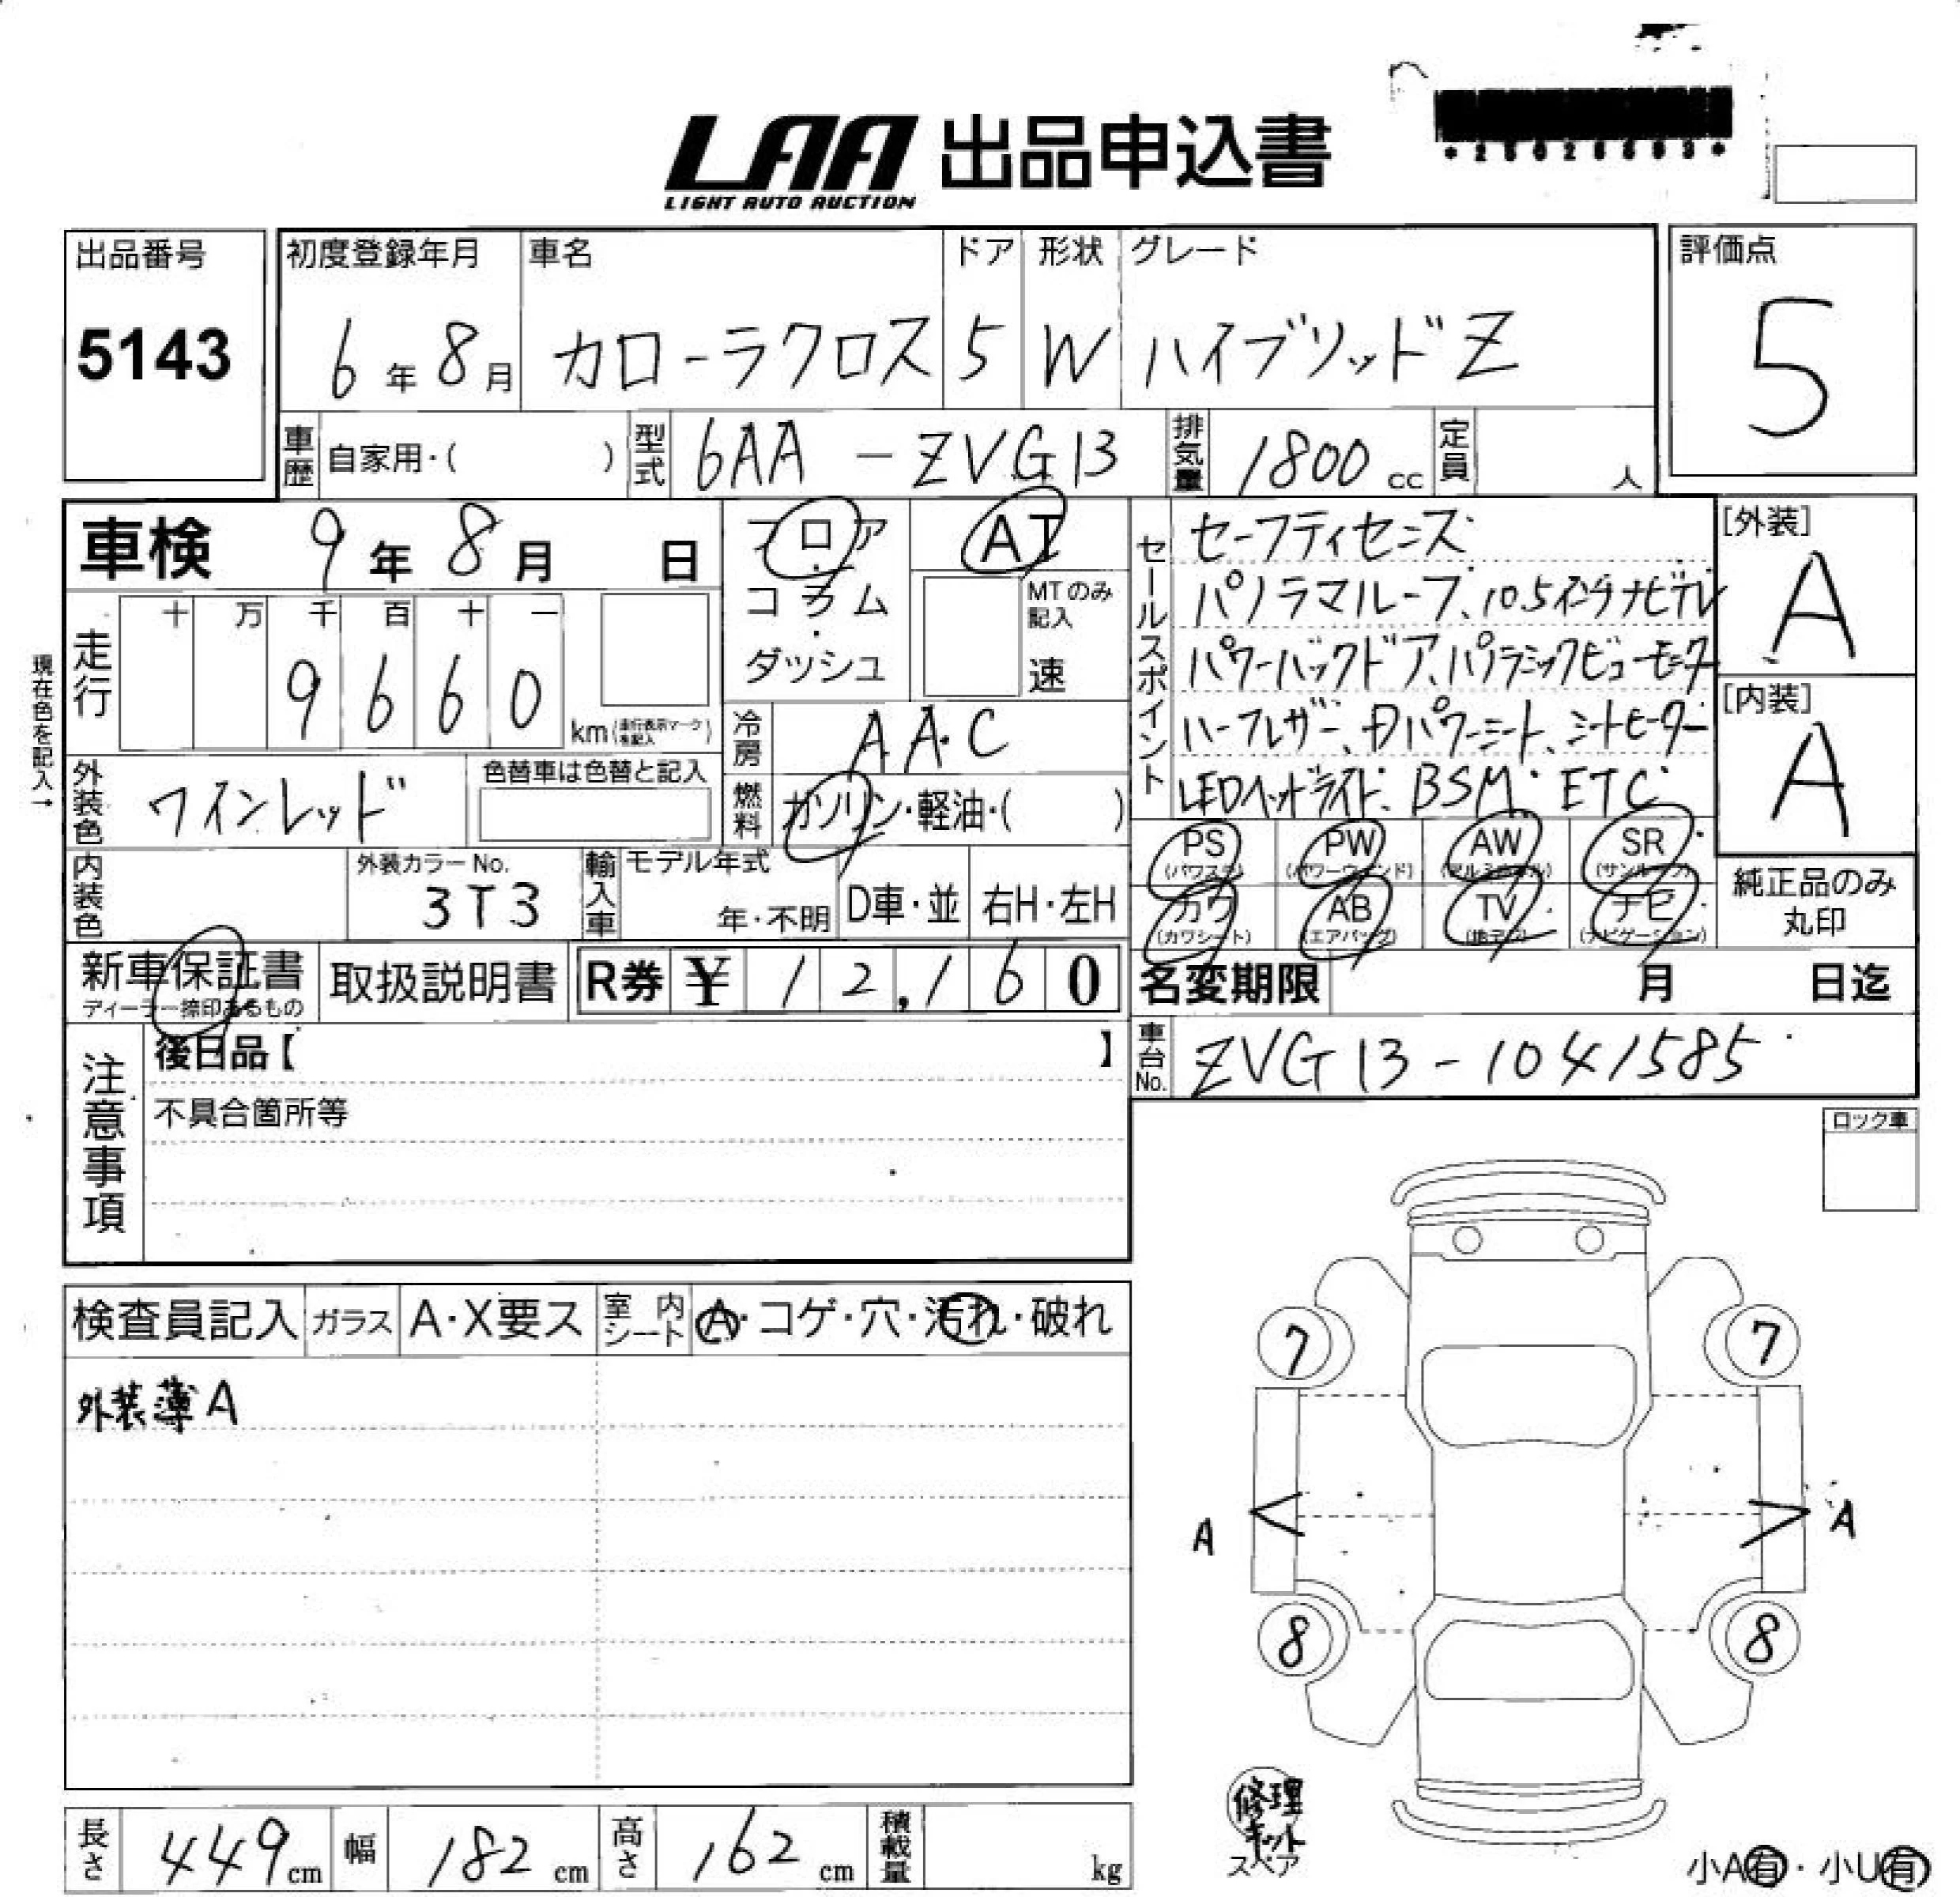 LAA 出品申込書
LIGHT AUTO AUCTION
*25026693*
出品番号
5143
初度登録年月
6年8月
車名
カローラクロス
ドア
5
形状
W
グレード
ハイブリッドZ
評価点
5
車歴 自家用・( )
型式 6AA-ZVG13
排気量 1800cc
定員 人
車検 9年8月 日
フロア・コラム・ダッシュ
AT
MTのみ記入
速
セールスポイント
セーフティセンス
パノラマルーフ、10.5インチナビTV
パワーバックドア、パノラミックビューモニター
ハーフレザー、Dパワーシート、シートヒーター
LEDヘッドライト、BSM・ETC
[外装]
A
[内装]
A
現在色を記入→
走行
十 万 千 百 十 一
9 6 6 0 km(走行表示マークを記入)
冷房 AAC
燃料 ガソリン・軽油・( )
外装色 ワインレッド
色替車は色替と記入
PS (パワステ)
PW (パワーウインド)
AW (アルミホイル)
SR (サンルーフ)
カワ (カワシート)
AB (エアバッグ)
TV (地デジ)
ナビ (ナビゲーション)
純正品のみ丸印
内装色
外装カラーNo.
3T3
輸入車
モデル年式
年・不明
D車・並
右H・左H
新車保証書
ディーラー捺印あるもの
取扱説明書
R券 ¥12,160
名変期限 月 日迄
車台No. ZVG13-1041585
注意事項
後日品【 】
不具合箇所等
ロック車
検査員記入
ガラス A・X要ス
室内シート A・コゲ・穴・汚れ・破れ
外装薄A
7
7
A
A
8
8
修理キット
スペア
長さ 449cm
幅 182cm
高さ 162cm
積載量 kg
小A有・小U有